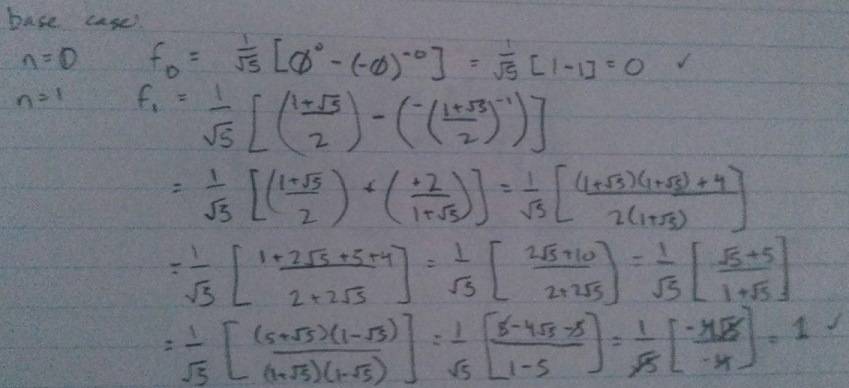 base case:
n=0 f₀ = 1/√5 [ϕ⁰ - (-ϕ)⁻⁰] = 1/√5 [1-1] = 0 ✓
n=1 f₁ = 1/√5 [((1+√5)/2) - (-((1+√5)/2)⁻¹)]
= 1/√5 [((1+√5)/2) + (+2/(1+√5))] = 1/√5 [((1+√5)(1+√5)+4)/(2(1+√5))]
= 1/√5 [(1+2√5+5+4)/(2+2√5)] = 1/√5 [(2√5+10)/(2+2√5)] = 1/√5 [(√5+5)/(1+√5)]
= 1/√5 [((5+√5)(1-√5))/((1+√5)(1-√5))] = 1/√5 [(5-4√5-5)/(1-5)] = 1/√5 [(-4√5)/(-4)] = 1 ✓